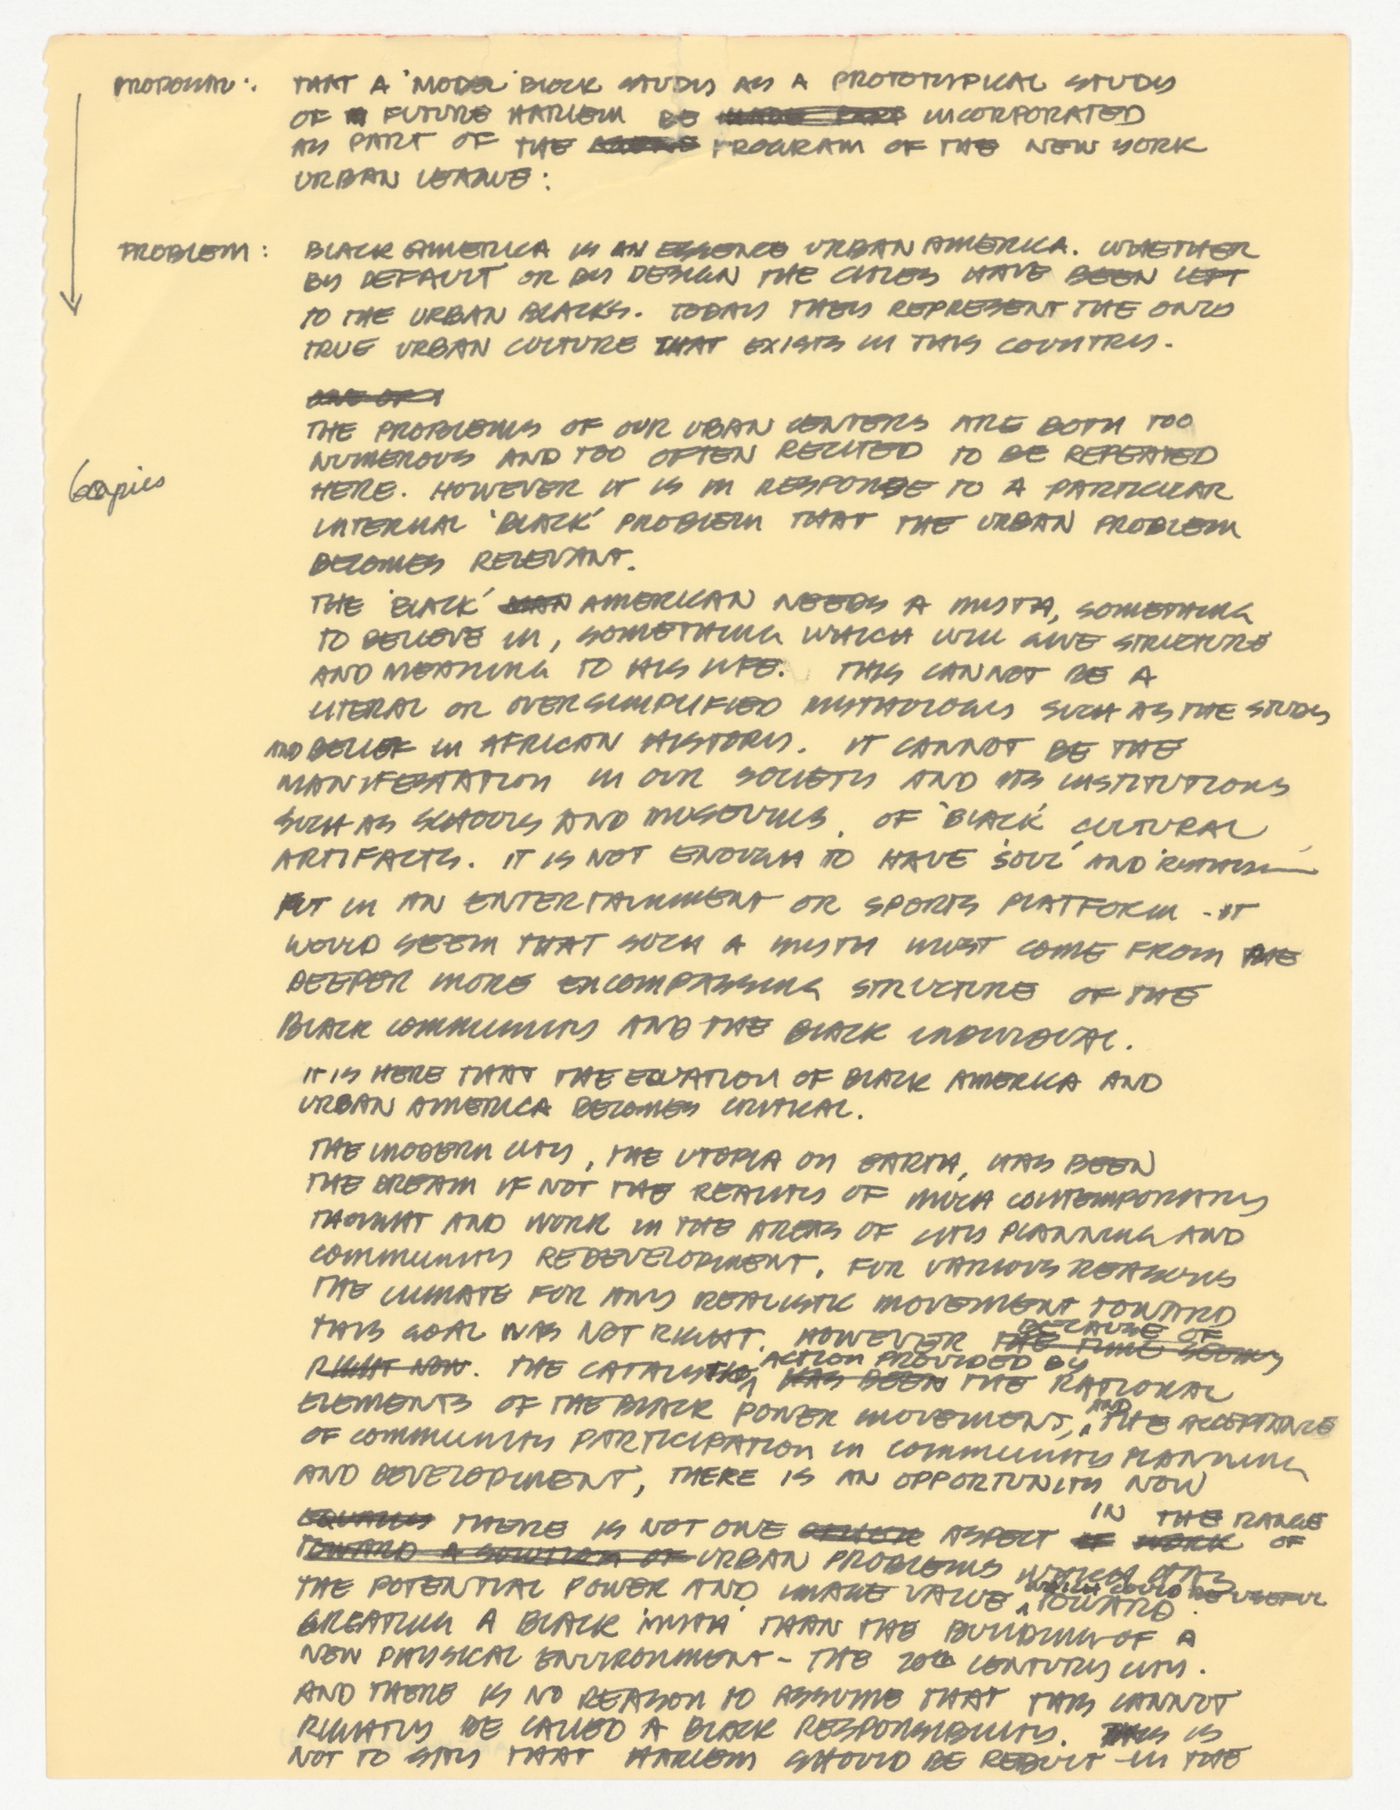 PROPOSAL: THAT A 'MODEL' BLOCK STUDY AS A PROTOTYPICAL STUDY
OF A FUTURE HARLEM BE MADE PART INCORPORATED
AS PART OF THE PROGRAM OF THE NEW YORK
URBAN LEAGUE:
PROBLEM: BLACK AMERICA IS IN ESSENCE URBAN AMERICA. WHETHER
BY DEFAULT OR BY DESIGN THE CITIES HAVE BEEN LEFT
TO THE URBAN BLACKS. TODAY THEY REPRESENT THE ONLY
TRUE URBAN CULTURE THAT EXISTS IN THIS COUNTRY.
ONE OF
THE PROBLEMS OF OUR UBAN CENTERS ARE BOTH TOO
NUMEROUS AND TOO OFTEN RECITED TO BE REPEATED
6 copies
HERE. HOWEVER IT IS IN RESPONSE TO A PARTICULAR
INTERNAL 'BLACK' PROBLEM THAT THE URBAN PROBLEM
BECOMES RELEVANT.
THE 'BLACK' MAN AMERICAN NEEDS A MYTH, SOMETHING
TO BELIEVE IN, SOMETHING WHICH WILL GIVE STRUCTURE
AND MEANING TO HIS LIFE. THIS CANNOT BE A
LITERAL OR OVERSIMPLIFIED MYTHOLOGY SUCH AS THE STUDY
AND BELIEF IN AFRICAN HISTORY. IT CANNOT BE THE
MANIFESTATION IN OUR SOCIETY AND ITS INSTITUTIONS
SUCH AS SCHOOLS AND MUSEUMS, OF 'BLACK' CULTURAL
ARTIFACTS. IT IS NOT ENOUGH TO HAVE 'SOUL' AND 'RHYTHM'
PUT IN AN ENTERTAINMENT OR SPORTS PLATFORM - IT
WOULD SEEM THAT SUCH A MYTH MUST COME FROM THE
DEEPER MORE ENCOMPASSING STRUCTURE OF THE
BLACK COMMUNITY AND THE BLACK INDIVIDUAL.
IT IS HERE THAT THE EQUATION OF BLACK AMERICA AND
URBAN AMERICA BECOMES CRITICAL.
THE MODERN CITY, THE UTOPIA ON EARTH, HAS BEEN
THE DREAM IF NOT THE REALITY OF MUCH CONTEMPORARY
THOUGHT AND WORK IN THE AREAS OF CITY PLANNING AND
COMMUNITY REDEVELOPMENT. FOR VARIOUS REASONS
THE CLIMATE FOR ANY REALISTIC MOVEMENT TOWARD
THIS GOAL WAS NOT RIGHT. HOWEVER THE TIME SEEMS
BECAUSE OF
RIGHT NOW. THE CATALYTIC HAS BEEN THE RATIONAL
ACTION PROVIDED BY
ELEMENTS OF THE BLACK POWER MOVEMENT, AND THE ACCEPTANCE
OF COMMUNITY PARTICIPATION IN COMMUNITY PLANNING
AND DEVELOPMENT, THERE IS AN OPPORTUNITY NOW
EQUALLY THERE IS NOT ONE ASPECT OF WORK IN THE RANGE OF
TOWARD A SOLUTION OF URBAN PROBLEMS WHICH HAS
THE POTENTIAL POWER AND IMAGE VALUE WHICH COULD BE USEFUL TOWARD
CREATING A BLACK 'MYTH' THAN THE BUILDING OF A
NEW PHYSICAL ENVIRONMENT - THE 20th CENTURY CITY.
AND THERE IS NO REASON TO ASSUME THAT THIS CANNOT
RIGHTLY BE CALLED A BLACK RESPONSIBILITY. THIS IS
NOT TO SAY THAT HARLEM SHOULD BE REBUILT IN THE